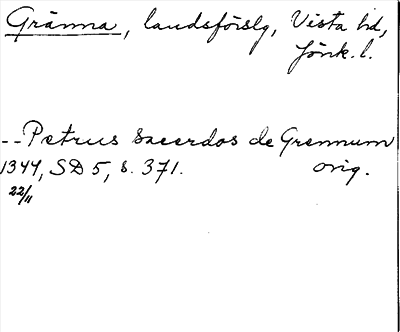 Gränna, landsförslg, Vista hd,
Jönk. l.
-- Petrus sacerdos de Grennum
1344, SD 5, s. 371. orig.
22/11